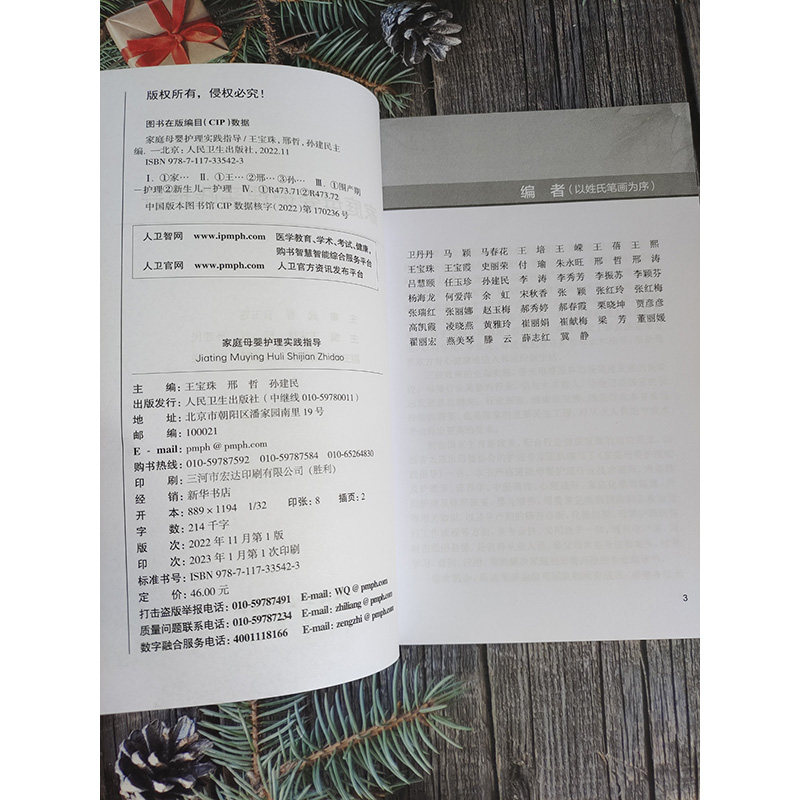 版权所有，侵权必究！
图书在版编目（CIP）数据
家庭母婴护理实践指导 / 王宝珠，邢哲，孙建民主
编. —北京：人民卫生出版社，2022.11
ISBN 978-7-117-33542-3
Ⅰ. ①家… Ⅱ. ①王…②邢…③孙… Ⅲ. ①围产期
－护理②新生儿－护理 Ⅳ. ①R473.71②R473.72
中国版本图书馆 CIP 数据核字（2022）第 170236 号
人卫智网 www.ipmph.com 医学教育、学术、考试、健康，
购书智慧智能综合服务平台
人卫官网 www.pmph.com 人卫官方资讯发布平台
家庭母婴护理实践指导
Jiating Muying Huli Shijian Zhidao
主 编：王宝珠 邢 哲 孙建民
出版发行：人民卫生出版社（中继线 010-59780011）
地 址：北京市朝阳区潘家园南里 19 号
邮 编：100021
E - mail：pmph @ pmph.com
购书热线：010-59787592 010-59787584 010-65264830
印 刷：三河市宏达印刷有限公司（胜利）
经 销：新华书店
开 本：889 × 1194 1/32 印张：8 插页：2
字 数：214 千字
版 次：2022 年 11 月第 1 版
印 次：2023 年 1 月第 1 次印刷
标准书号：ISBN 978-7-117-33542-3
定 价：46.00 元
打击盗版举报电话：010-59787491 E-mail：WQ @ pmph.com
质量问题联系电话：010-59787234 E-mail：zhiliang @ pmph.com
数字融合服务电话：4001118166 E-mail：zengzhi @ pmph.com
编 者（以姓氏笔画为序）
卫丹丹 马 颖 马春花 王 培 王 嵘 王 蓓 王 熙
王宝珠 王宝霞 史丽荣 付 瑜 朱永旺 邢 哲 邢 涛
吕慧颐 任玉珍 孙建民 李 涛 李秀芳 李振苏 李颖芬
杨海龙 何爱萍 余 虹 宋秋香 张 颖 张红玲 张红梅
张瑞红 张丽娜 赵玉梅 郝秀婷 郝春霞 栗晓坤 贾彦彦
高凯霞 凌晓燕 黄雅玲 崔丽娟 崔献梅 梁 芳 董丽媛
翟丽宏 燕美琴 滕 云 薛志红 冀 静
3